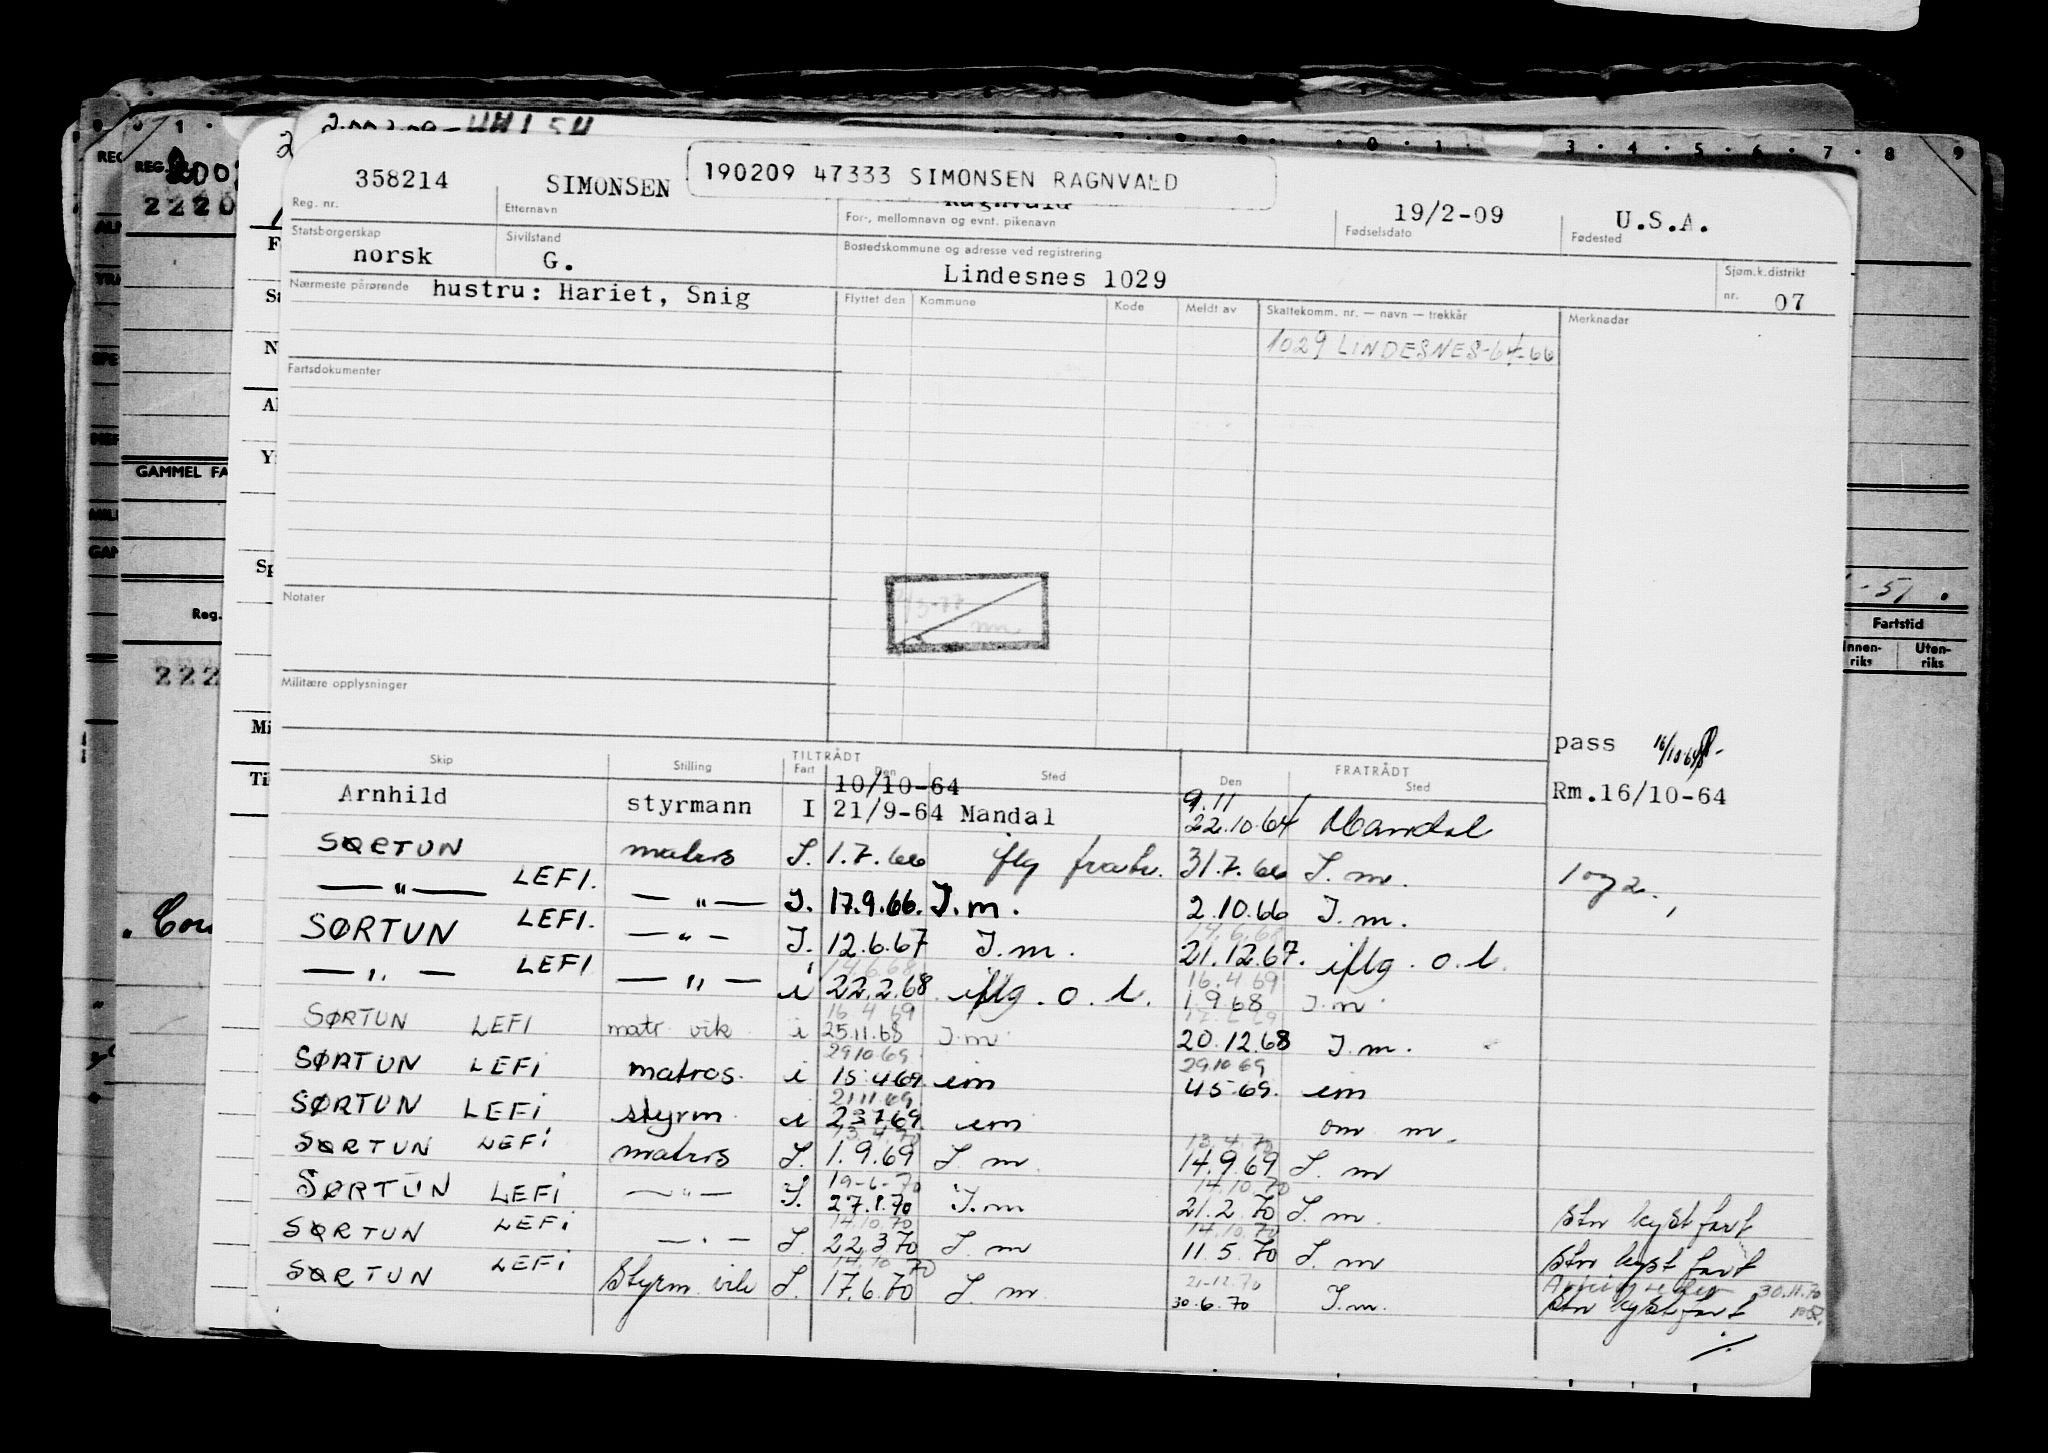 358214 SIMONSEN 190209 47333 SIMONSEN RAGNVALD 19/2-09 U.S.A.
Reg. nr. Etternavn For-, mellomnavn og evnt. pikenavn Fødselsdato Fødested
Statsborgerskap Sivilstand Bostedskommune og adresse ved registrering Sjøm.k.distrikt
norsk G. Lindesnes 1029 nr. 07
Nærmeste pårørende hustru: Hariet, Snig Flyttet den Kommune Kode Meldt av Skattekomm. nr. — navn — trekkår Merknader
1029 LINDESNES-64-66
Fartsdokumenter
GAMMEL FA
Notater
Reg.
-51.
Fartstid
Innen-riks Uten-riks
Militære opplysninger
pass 16/10-64
Skip Stilling TILTRÅDT Fart Den Sted FRATRÅDT Den Sted
10/10-64 9.11
Arnhild styrmann I 21/9-64 Mandal 22.10.64 Mandal Rm.16/10-64
SØRTUN matros I. 1.7.66 iflg fratr. 31.7.66 I.m. 1 og 2.
—"— LEFI. —"— I. 17.9.66. I.m. 2.10.66 I.m.
14.6.68
SØRTUN LEFI. —"— I. 12.6.67 I.m. 21.12.67. iflg. o.l.
14.6.68 16.4.69
—"— LEFI —"— i 22.2.68 iflg. o.l. 1.9.68 I.m
16 4 69
SØRTUN LEFI matr vik i 25.11.68 I.m 20.12.68 I.m.
29.10.69 29.10.69
SØRTUN LEFI matros. i 15.4.69. im 4.5.69. im
21.11.69
SØRTUN LEFI styrm i 23.7.69. im om m.
13.4.70 13.4.70
SØRTUN LEFI matros I. 1.9.69 I.m. 14.9.69 I.m
19-6-70 14.10.70
SØRTUN LEFI —"— I. 27.1.70 I.m 21.2.70 I.m. Stn kystfart
14.10.70 14.10.70
SØRTUN LEFI —"— I. 22.3.70 I.m 11.5.70 I.m Stn kystfart
14.10.70 21-12.70 30.11.70
SØRTUN LEFI Styrm vik I. 17.6.70 I.m. 30.6.70 I.m. Stn kystfart